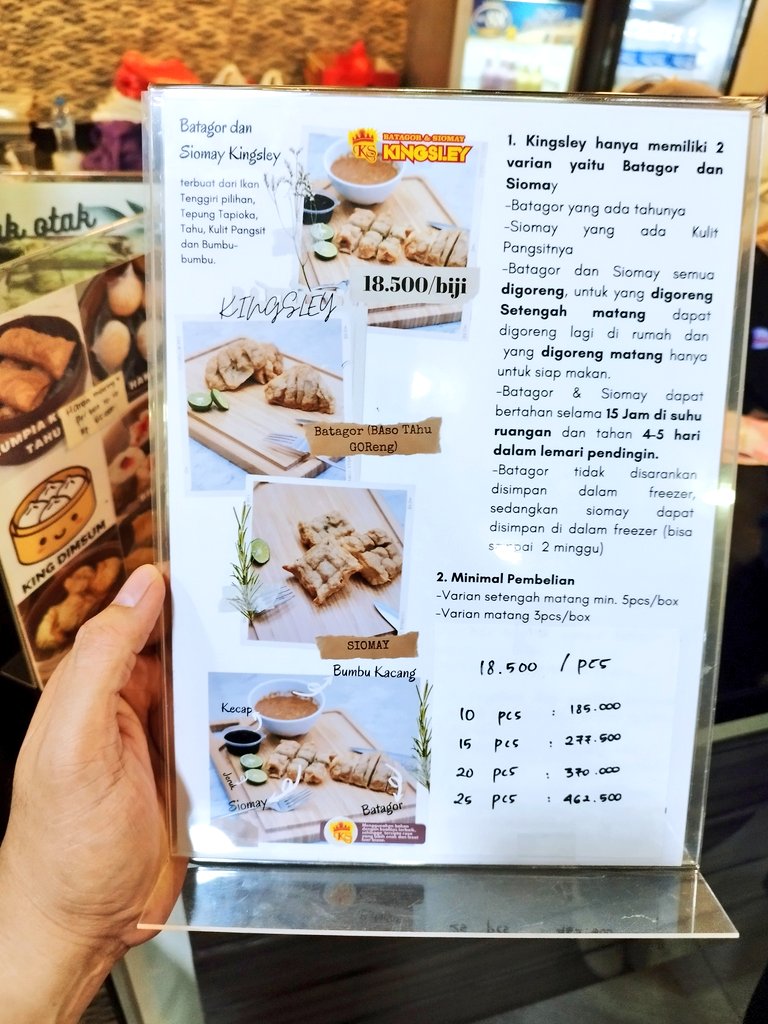 Batagor dan
Siomay Kingsley
terbuat dari Ikan
Tenggiri pilihan,
Tepung Tapioka,
Tahu, Kulit Pangsit
dan Bumbu-
bumbu.
KS
BATAGOR & SIOMAY
KINGSLEY
18.500/biji
KINGSLEY
Batagor (BAso TAhu
GOReng)
SIOMAY
Bumbu Kacang
Kecap
Jeruk
Siomay
Batagor
KS
1. Kingsley hanya memiliki 2
varian yaitu Batagor dan
Siomay
-Batagor yang ada tahunya
-Siomay yang ada Kulit
Pangsitnya
-Batagor dan Siomay semua
digoreng, untuk yang digoreng
Setengah matang dapat
digoreng lagi di rumah dan
yang digoreng matang hanya
untuk siap makan.
-Batagor & Siomay dapat
bertahan selama 15 Jam di suhu
ruangan dan tahan 4-5 hari
dalam lemari pendingin.
-Batagor tidak disarankan
disimpan dalam freezer,
sedangkan siomay dapat
disimpan di dalam freezer (bisa
2 minggu)
2. Minimal Pembelian
-Varian setengah matang min. 5pcs/box
-Varian matang 3pcs/box
18.500 / pcs
10 pcs : 185.000
15 pcs : 277.500
20 pcs : 370.000
25 pcs : 462.500
otak
TAHU
KING DIMSUM